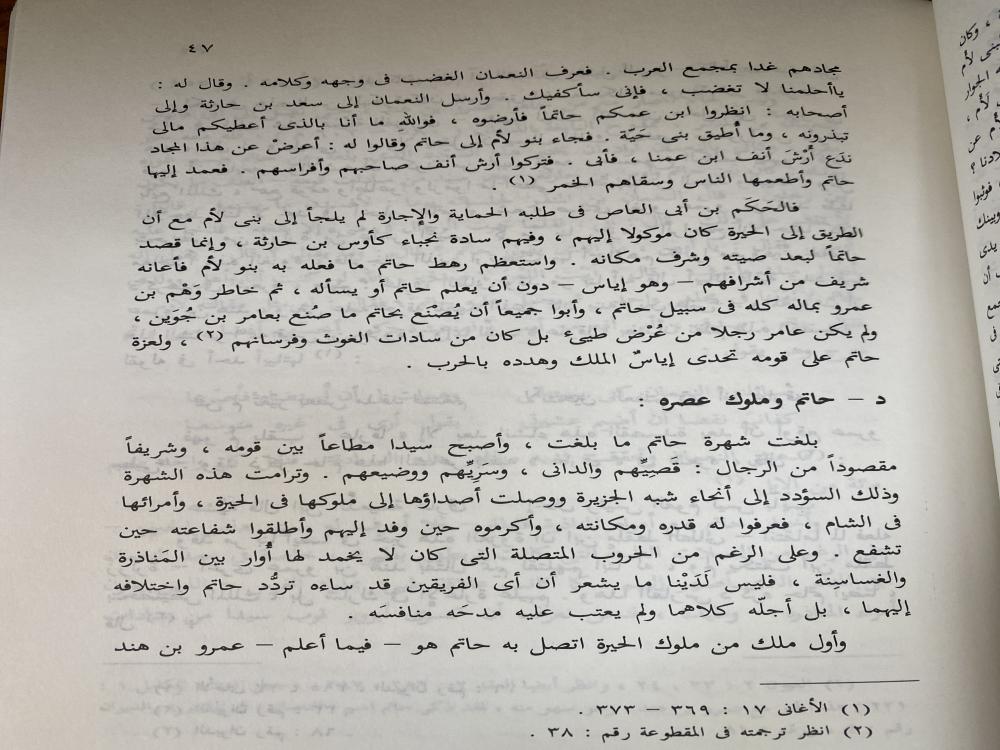 ٤٧
مجادهم غدا بمجمع العرب . فعرف النعمان الغضب فى وجهه وكلامه . وقال له :
ياأحلمنا لا تغضب ، فإنى سأكفيك . وأرسل النعمان إلى سعد بن حارثة وإلى
أصحابه : انظروا ابن عمكم حاتماً فأرضوه ، فواللهِ ما أنا بالذى أعطيكم مالى
تبذرونه ، وما أُطيق بنى حَيّة . فجاء بنو لأم إلى حاتم وقالوا له : أعرضْ عن هذا المجاد
ندَع أَرْشَ أنف ابن عمنا ، فأبى . فتركوا أرش أنف صاحبهم وأفراسهم . فعمد إليها
حاتم وأطعمها الناس وسقاهم الخمر (١) .
فالحَكَم بن أبى العاص فى طلبه الحماية والإجارة لم يلجأ إلى بنى لأم مع أن
الطريق إلى الحيرة كان موكولا إليهم ، وفيهم سادة نجباء كأوس بن حارثة ، وإنما قصد
حاتماً لبعد صيته وشرف مكانه . واستعظم رهط حاتم ما فعله به بنو لأم فأعانه
شريف من أشرافهم – وهو إياس – دون أن يعلم حاتم أو يسأله ، ثم خاطر وَهْم بن
عمرو بماله كله فى سبيل حاتم ، وأبوا جميعاً أن يُصْنَع بحاتم ما صُنع بعامر بن جُوَين ،
ولم يكن عامر رجلا من عُرْض طيىء بل كان من سادات الغوث وفرسانهم (٢) ، ولعزة
حاتم على قومه تحدى إياسٌ الملك وهدده بالحرب .
د – حاتم وملوك عصره :
بلغت شهرة حاتم ما بلغت ، وأصبح سيدا مطاعاً بين قومه ، وشريفاً
مقصوداً من الرجال : قَصِيِّهم والدانى ، وسَرِيِّهم ووضيعهم . وترامت هذه الشهرة
وذلك السؤدد إلى أنحاء شبه الجزيرة ووصلت أصداؤها إلى ملوكها فى الحيرة ، وأمرائها
فى الشام ، فعرفوا له قدره ومكانته ، وأكرموه حين وفد إليهم وأطلقوا شفاعته حين
تشفع . وعلى الرغم من الحروب المتصلة التى كان لا يخمد لها أُوار بين المَناذرة
والغساسنة ، فليس لَدَيْنا ما يشعر أن أى الفريقين قد ساءه تردُّد حاتم واختلافه
إليهما ، بل أجلّه كلاهما ولم يعتب عليه مدحَه منافسَه .
وأول ملك من ملوك الحيرة اتصل به حاتم هو – فيما أعلم – عمرو بن هند
(١) الأغانى ١٧ : ٣٦٩ – ٣٧٣ .
(٢) انظر ترجمته فى المقطوعة رقم : ٣٨ .